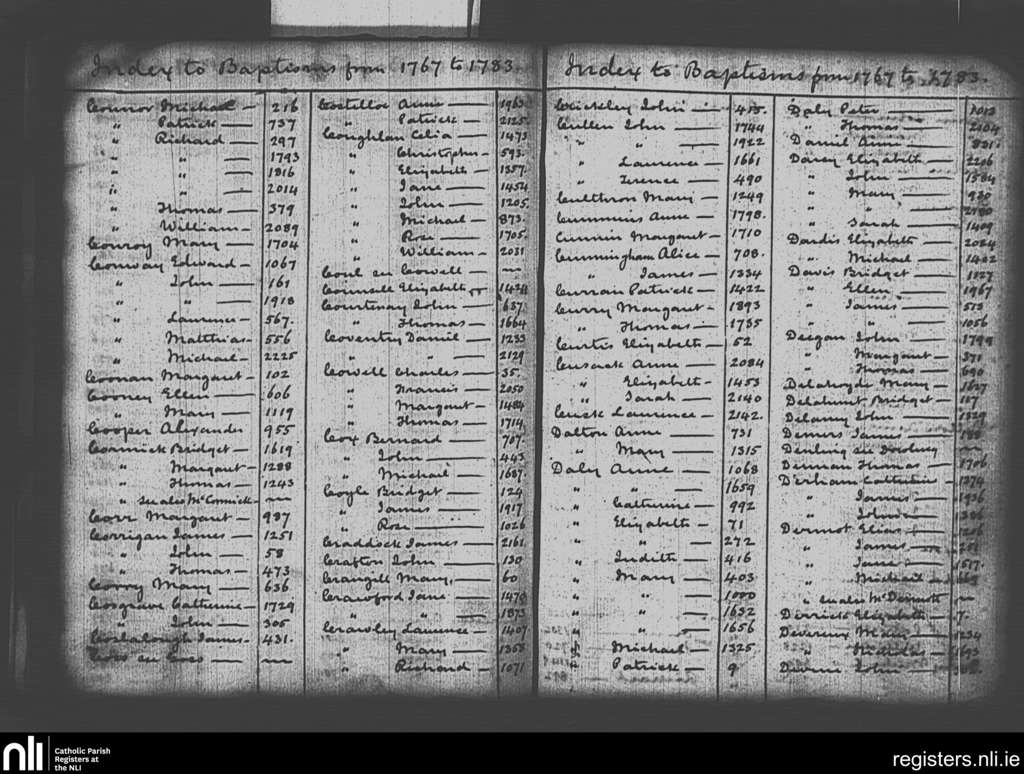 Index to Baptisms from 1767 to 1783.
Connor Michael — 216
" Patrick — 737
" Richard — 297
" " — 1793
" " — 1816
" " — 2014
" Thomas — 379
" William — 2089
Conroy Mary — 1704
Conway Edward — 1067
" John — 161
" " — 1918
" Laurence — 567.
" Matthias — 556
" Michael — 2225
Coonan Margaret — 102
Cooney Ellen — 606
" Mary — 1119
Cooper Alexander 955
Cormick Bridget — 1619
" Margaret — 1288
" Thomas — 1243
" see also McCormick —
Corr Margaret — 987
Corrigan James — 1251
" John — 58
" Thomas — 473
Corry Mary — 636
Cosgrave Catherine — 1729
" John — 305
James — 431.
see
Costelloe Anne — 1963
" Patrick — 2125
Coughlan Celia — 1473
" Christopher — 593.
" Elizabeth — 1357.
" Jane — 1454
" John — 1205.
" Michael — 873.
" Rose — 1705.
" William — 2031
Coul see Cowell —
Counsell Elizabeth 1424
Courtenay John — 637.
" Thomas — 1664
Coventry Daniel — 1233
" " — 2129
Cowell Charles — 35.
" Francis — 2050
" Margaret — 1484
" Thomas — 1714
Cox Bernard — 707.
" John — 443
" Michael — 1687.
Coyle Bridget — 124
" James — 1917
" Rose — 1026
Craddock James — 2161
Crafton John — 130
Crangill Mary, — 60
Crawford Jane — 1478
" " — 1873
Crawley Laurence — 1407
" Mary — 1358
" Richard — 1071
Index to Baptisms from 1767 to 1783.
John — 415.
Cullen John — 1744
" " — 1922
" Laurence — 1661
" Terence — 490
Culthron Mary — 1249
Cummins Anne — 1798.
Cunnin Margaret — 1710
Cunningham Alice — 708.
" James — 1334
Curran Patrick — 1422
Curry Margaret — 1893
" Thomas — 1735
Curtis Elizabeth — 52
Cusack Anne — 2084
" Elizabeth — 1453
" Sarah — 2140
Cusck Laurence — 2142.
Dalton Anne — 731
" Mary — 1315
Daly Anne — 1068
" " — 1659
" Catherine — 992
" Elizabeth — 71
" " — 272
" Judith — 416
" Mary — 403
" " — 1000
" " — 1632
" " — 1656
" Michael — 1325.
" Patrick — 9
Daly Peter — 1012
" Thomas — 2104
Daniel Anne — 821.
Darcy Elizabeth — 2206
" John — 1584
" Mary — 930
" " — 2180
" Sarah — 1409
Dardis Elizabeth — 2024
" Michael — 1402
Davis Bridget — 1127
" Ellen — 1967
" James — 513
" " — 1056
Deegan John — 1799
" Margaret — 371
" Thomas — 690
Delahoyde Mary — 1627
Delahunt Bridget — 117
Delany John — 1329
Demers James —
see Dooling —
Dennan Thomas — 1706
Derham Catherine — 1274
" James — 1936
" John — 1386
Dermot Elias —
" James —
" Jane — 1517.
" Michael —
" see also McDermott —
Derrick Elizabeth — 7.
Devereux Mary — 1234
" Nicholas — 1693
John —
nli
Catholic Parish
Registers at
the NLI
registers.nli.ie